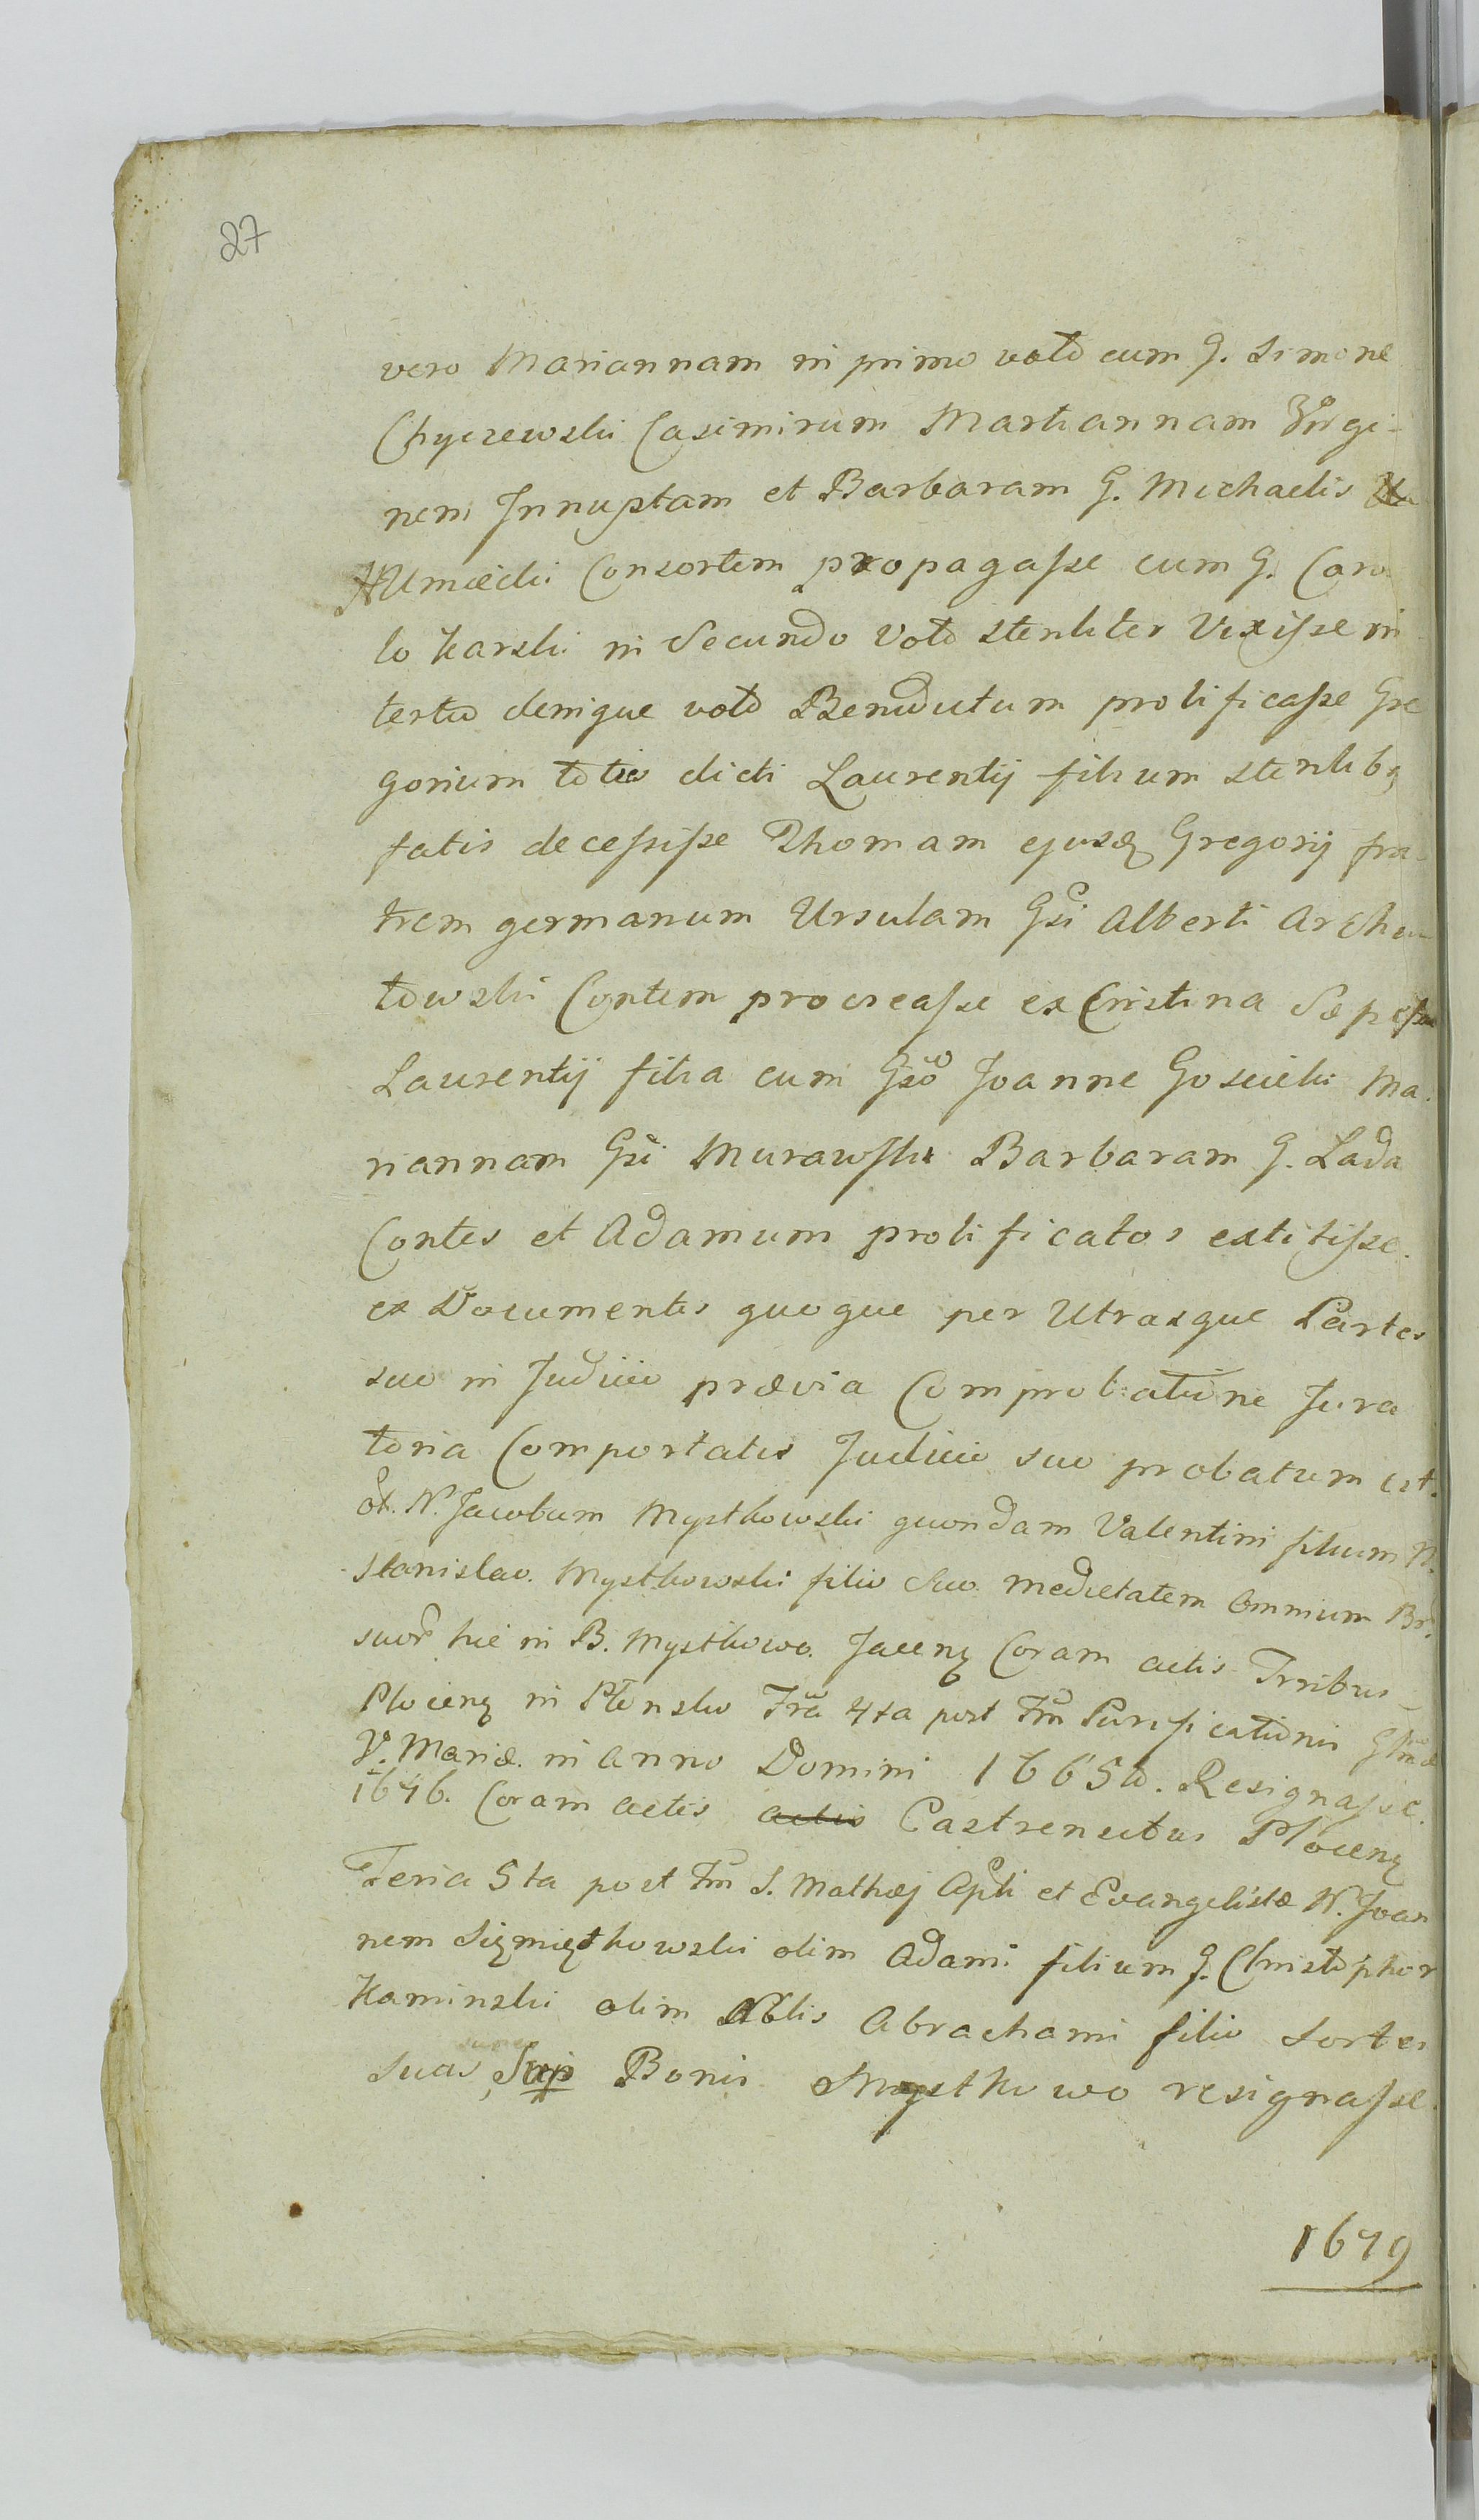 27
vero Mariannam in primo voto cum G. Simone
Chyczewski Casimirum Martiannam Virgi-
nem Innuptam et Barbaram G. Michaelis
Umiecki Consortem propagasse cum G. Caro
lo Karski in Secundo Voto steriliter Vixisse in
tertio denique voto Benedictum prolificasse Gre
gorium toties dicti Laurentij filium sterilibq
fatis decessisse Thomam ejusdq Gregorij fra
trem germanum Ursulam Gsi Alberti
towski Contem procreasse ex Cristina
Laurentij filia cum Gso Joanne Goscicki Ma
riannam Gsi Murawski Barbaram G. Lada
Contes et Adamum prolificatos extitisse.
ex Documentis quoque per Utrasque Partes
suo in Judicio prævia Comprobatione Jura
toria Comportatis Judicio suo probatum est.
N. Jacobum Mystkowski quondam Valentini filium N.
Stanislao Mystkowski filio suo medietatem Omnium
suor hic in B. Mystkowo Jacenq Coram actis
Plocenq in Płonsko Fra 4ta post Fm Purificationis
V. Mariæ in Anno Domini 1665to. Resignasse.
1676. Coram actis actis Castrensibus Plocenq
Feria 5ta post Fm S. Mathæj Apli et Evangelistæ N. Joan
nem olim Adami filium G. Christophor
Kaminski olim Nblis Abrachami filio Sortes
suas Sup Bonis Mystkowo resignasse.
1679